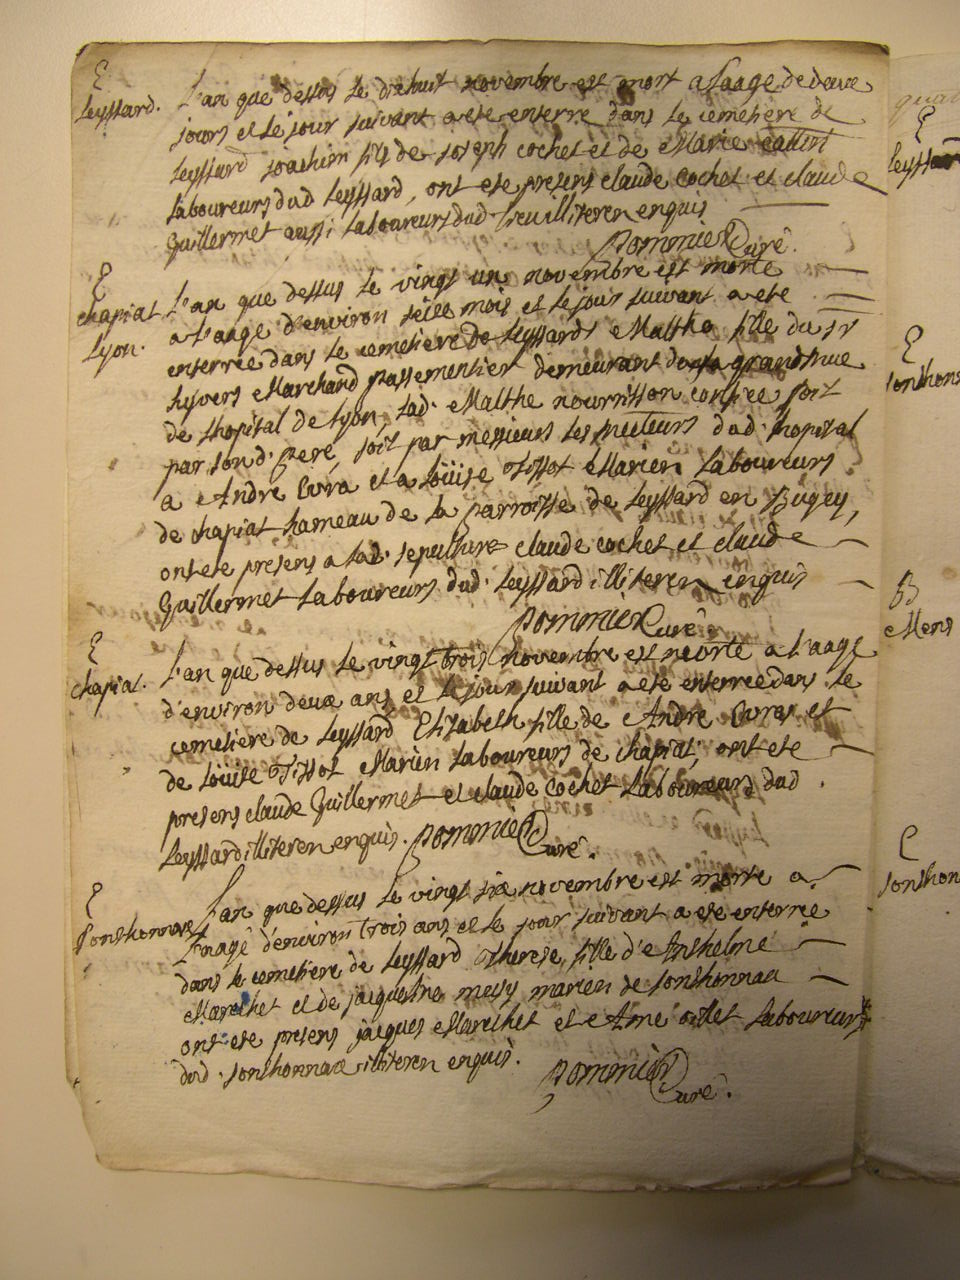 E
Leyssard.
L'an que dessus le dixhuit novembre est mort a l'aage de deux
jours et le jour suivant a ete enterre dans le cemetiere de
Leyssard Joachim fils de Joseph cochet et de Marie
Laboureurs dud Leyssard, ont ete presens claude cochet et claude
Guillermet aussi Laboureurs dud lieu illiteren enquis
pommier Curé.
E
chapiat
Lyon.
L'an que dessus le vingt un novembre est morte
a L'aage d'environ seize mois et le jour suivant a ete
enterrée dans le cemetiere de Leyssard Malthe fille du sr
hyvers Marchand passementier demeurant grand rue
de Lhopital de Lyon, lad. Malthe nourrisson confiee soit
par son d. pere, soit par messieurs les recteurs dud. hopital
a Andre et a Loüise Tissot Marien Laboureurs
de chapiat hameau de la parroisse de Leyssard en Bugey,
ont ete presens a lad. sepulture claude cochet et claude
Guillermet Laboureurs dud. Leyssard illiteren enquis
pommier Curé
E
chapiat.
L'an que dessus le vingt trois novembre est morte a l'aage
d'environ deux ans et le jour suivant a ete enterrée dans le
cemetiere de Leyssard Elizabeth fille de Andre et
de Loüise Tissot Marien Laboureurs de chapiat, ont ete
presens claude Guillermet et claude Cochet Laboureurs dud
Leyssard illiteren enquis. pommier Curé.
E
Sonthonnax
L'an que dessus le vingt six novembre est morte a
L'aage d'environ trois ans et le jour suivant a ete enterrée
dans le cemetiere de Leyssard Therese fille d'Anthelme
Marechet et de jacqueline marien de sonthonnax
ont ete presens jacques Marechet et Amé Laboureurs
dud. sonthonnax illiteren enquis.
pommier Curé.
E
Leyssard
E
sonthonn
B
Mens
E
sonthon